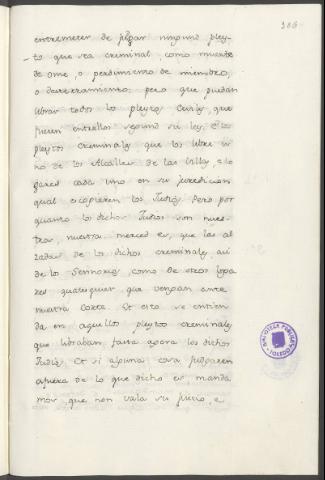 306
entremeter de jusgar ningund pley-
to que sea criminal, como muerte
de ome, o perdimiento de miembro,
o desterramiento; pero que puedan
librar todos los pleytos civiles, que
fueren entrellos segund su ley. Et los
pleytos criminales que los libre u-
no de los Alcalles de las villas, e lo-
gares cada uno en su juredicion
qual escogieren los Judios. Pero por
quanto los dichos Judios son nues-
tros, nuestra merced es, que las al-
zadas de los dichos criminales, asi
de los Sennorios, como de otros loga-
res qualesquier, que vengan ante
nuestra Corte. Et esto se entien-
da en aquellos pleytos criminales
que libraban fasta agora los dichos
Judios. Et si alguna cosa judgaren
afuera de lo que dicho es, manda-
mos, que non vala su juicio, e
BIBLIOTECA PUBLICA TOLEDO